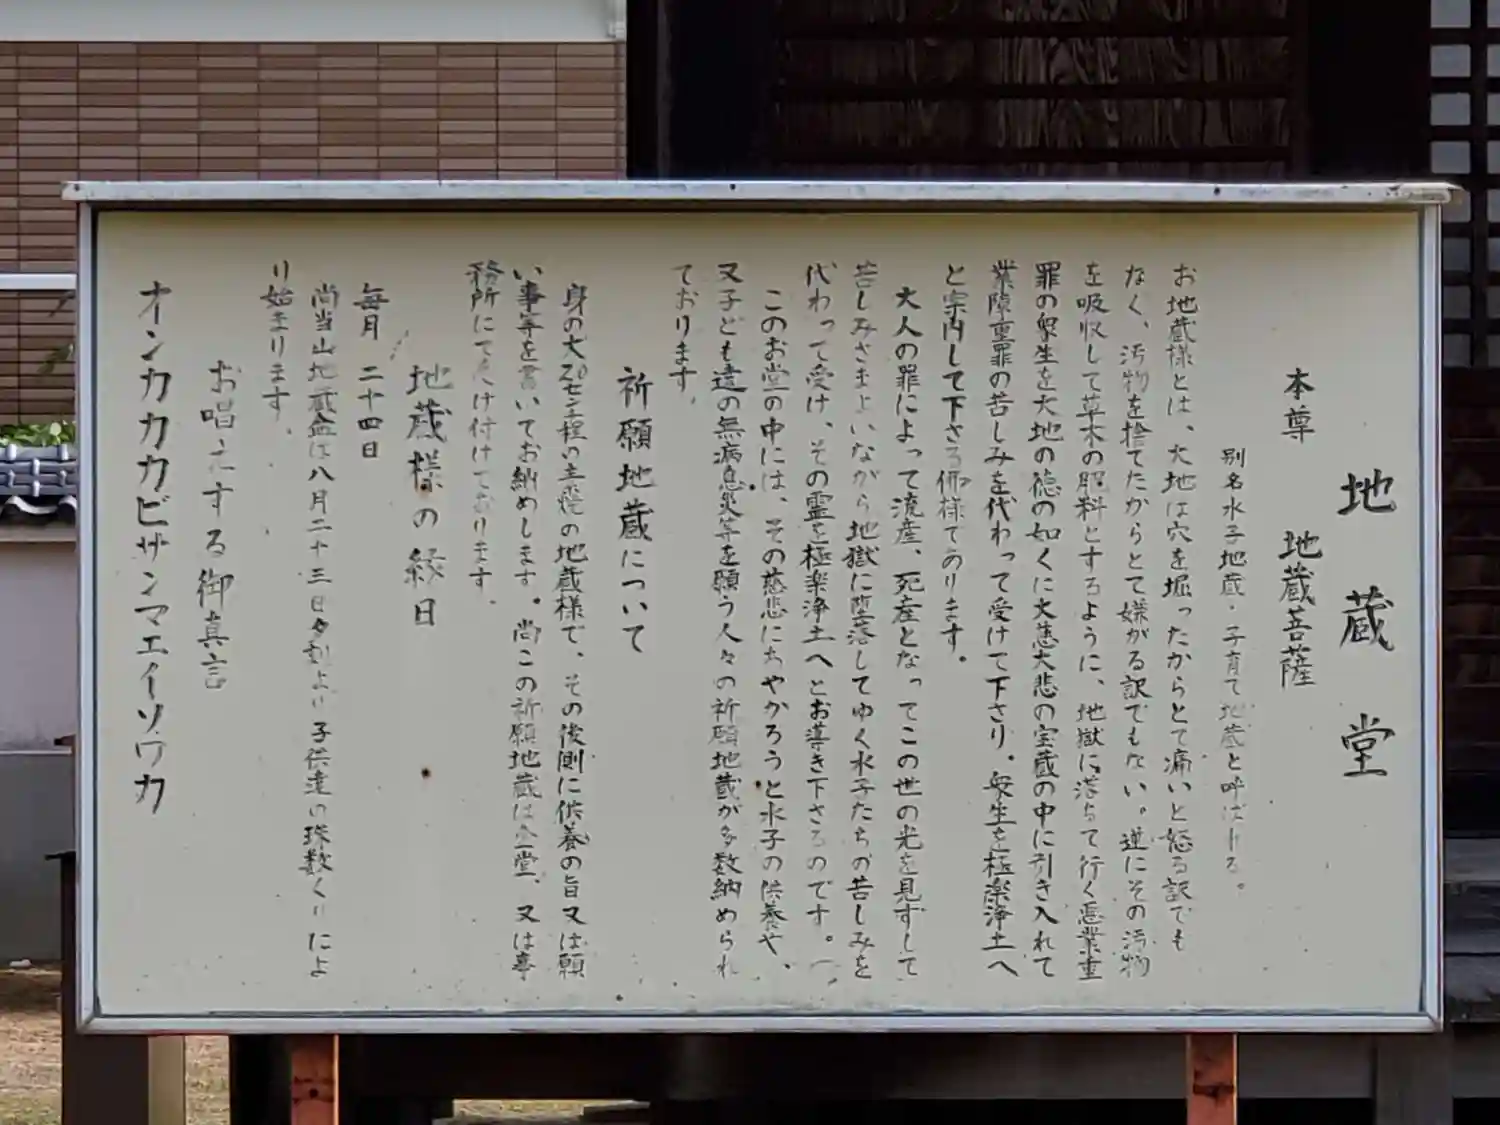 地蔵堂
本尊 地蔵菩薩
別名水子地蔵・子育て地蔵と呼ばれる。
お地蔵様とは、大地は穴を堀ったからとて痛いと怒る訳でも
なく、汚物を捨てたからとて嫌がる訳でもない。逆にその汚物
を吸収して草木の肥料とするように、地獄に落ちて行く悪業重
罪の衆生を大地の徳の如くに大慈大悲の宝蔵の中に引き入れて
業障重罪の苦しみを代わって受けて下さり。衆生を極楽浄土へ
と案内して下さる佛様であります。
大人の罪によって流産、死産となってこの世の光を見ずして
苦しみさまよいながら地獄に堕落してゆく水子たちの苦しみを
代わって受け、その霊を極楽浄土へとお導き下さるのです。
このお堂の中には、その慈悲にあやかろうと水子の供養や、
又子ども達の無病息災等を願う人々の祈願地蔵が多数納められ
ております。
祈願地蔵について
身の丈20センチ程の土焼の地蔵様で、その後側に供養の旨又は願
い事等を書いてお納めします。尚この祈願地蔵は全堂、又は事
務所にて受け付けております。
地蔵様の縁日
毎月 二十四日
尚当山地蔵盆は八月二十三日夕刻より子供達の珠数くりによ
り始まります。
お唱えする御真言
オンカカカビサンマエイソワカ